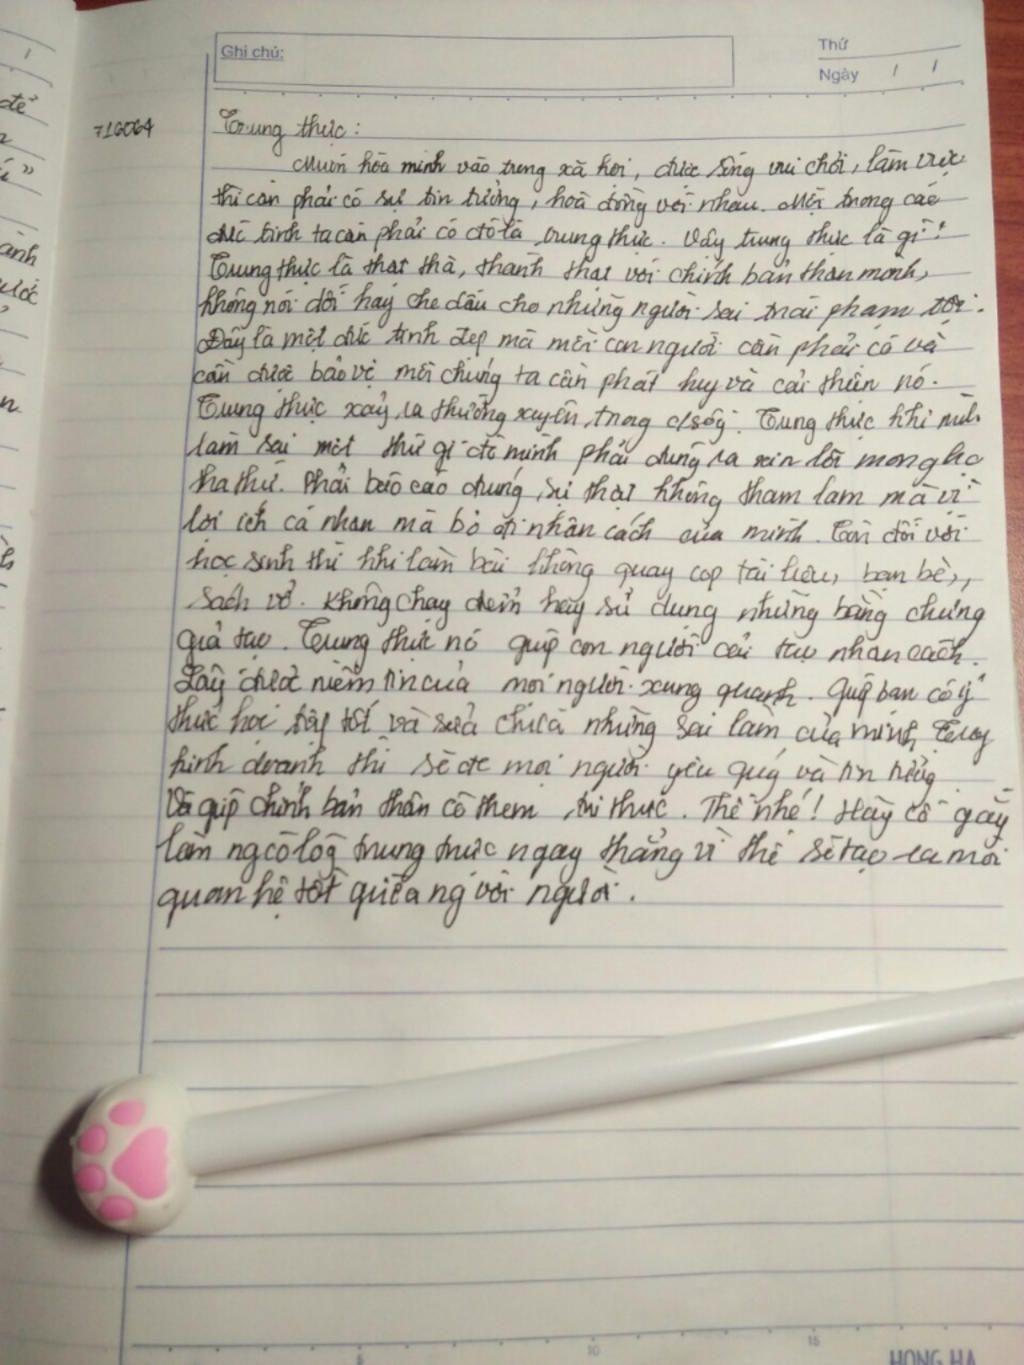 Ghi chú:
Thứ
Ngày / /
716064
Trung thực:
Muốn hòa mình vào trong xã hội, được sống vui chơi, làm việc
thì cần phải có sự tin tưởng, hoà đồng với nhau. Một trong các
đức tính ta cần phải có đó là trung thực. Vậy trung thực là gì?
Trung thực là thật thà, thành thật với chính bản thân mình,
không nói dối hay che dấu cho những người sai trái phạm tội.
Đây là một đức tính đẹp mà mỗi con người cần phải có và
cần được bảo vệ mỗi chúng ta cần phát huy và cải thiện nó.
Trung thực xảy ra thường xuyên trong c/sốg. Trung thực khi mình
làm sai một thứ gì đó mình phải đứng ra xin lỗi mong họ
tha thứ. Phải báo cáo đúng sự thật không tham lam mà vì
lợi ích cá nhân mà bỏ đi nhân cách của mình. Còn đối với
học sinh thì khi làm bài không quay cop tài liệu, bạn bè,,
sách vở. Không chạy điểm hay sử dụng những bằng chứng
giả tạo. Trung thực nó giúp con người cải tạo nhân cách.
Lấy được niềm tin của mọi người xung quanh. Giúp bạn có ý
thức học tập tốt và sửa chữa những sai lầm của mình
kinh doanh thì sẽ đc mọi người yêu quý và tin tưởng
Và giúp chính bản thân có thêm tri thức. Thế nhé! Hãy cố gắg
làm ng có lòg trung trực ngay thẳng vì thế sẽ tạo ra mối
quan hệ tốt giữa ng với người.
5
10
15
HONG HA